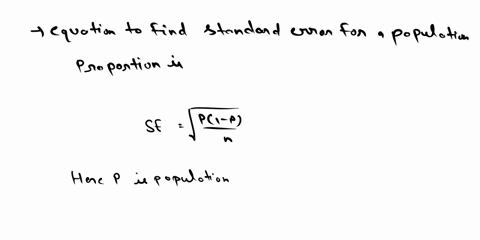 → equation to find standard error for a population
proportion is
SE = √(P(1-P)/n)
Here P is population